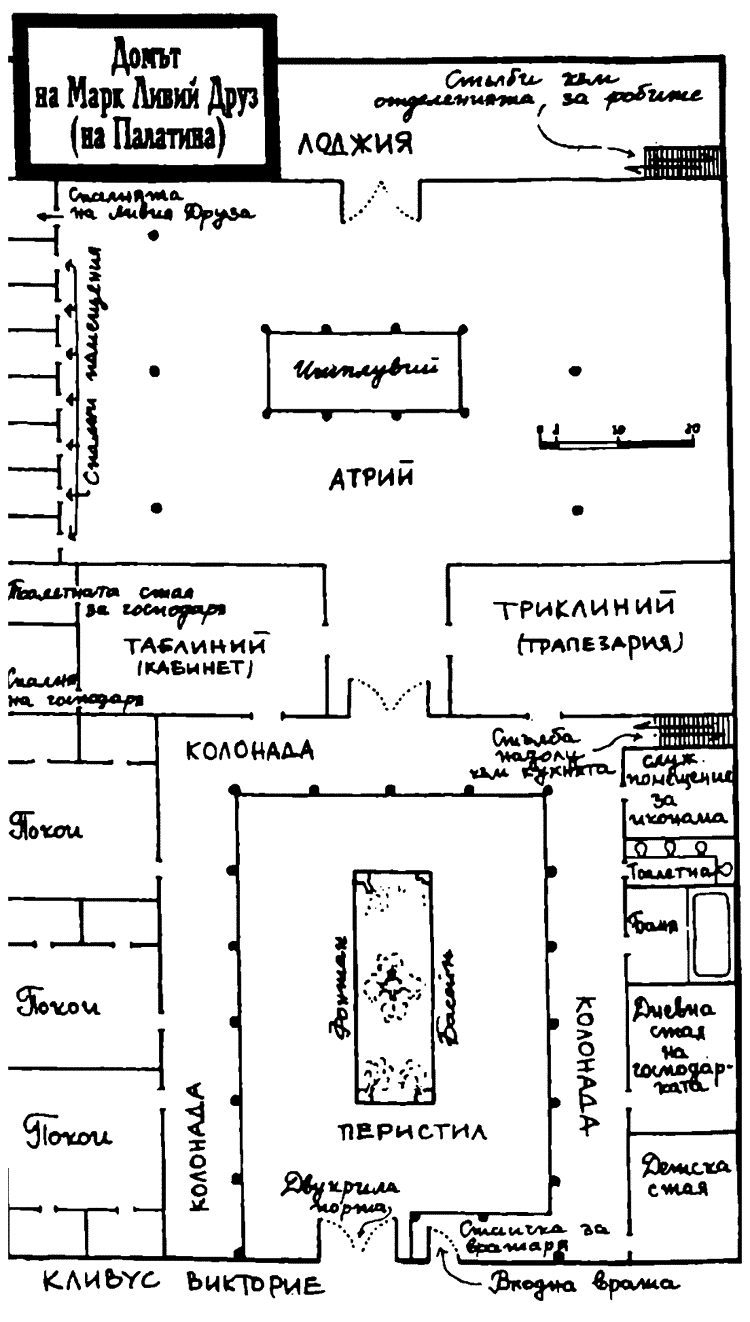 Домът
на Марк Ливий Друз
(на Палатина)
Стълби към
отделенията за робите
ЛОДЖИЯ
Спалнята
на Ливия Друза
Спални помещения
Имплувий
0 2 10 20
АТРИЙ
Тоалетната стая
за господаря
ТАБЛИНИЙ
(КАБИНЕТ)
ТРИКЛИНИЙ
(ТРАПЕЗАРИЯ)
Спалня
на господаря
КОЛОНАДА
Стълба
надолу
към кухнята
служ.
помещение
за
иконома
Покои
Тоалетна
Баня
Фонтан
Басейн
Покои
КОЛОНАДА
Дневна
стая
на
господар-
ката
КОЛОНАДА
Покои
ПЕРИСТИЛ
Детска
стая
Двукрила
порта
Стаичка за
вратаря
КЛИВУС ВИКТОРИЕ
Входна врата